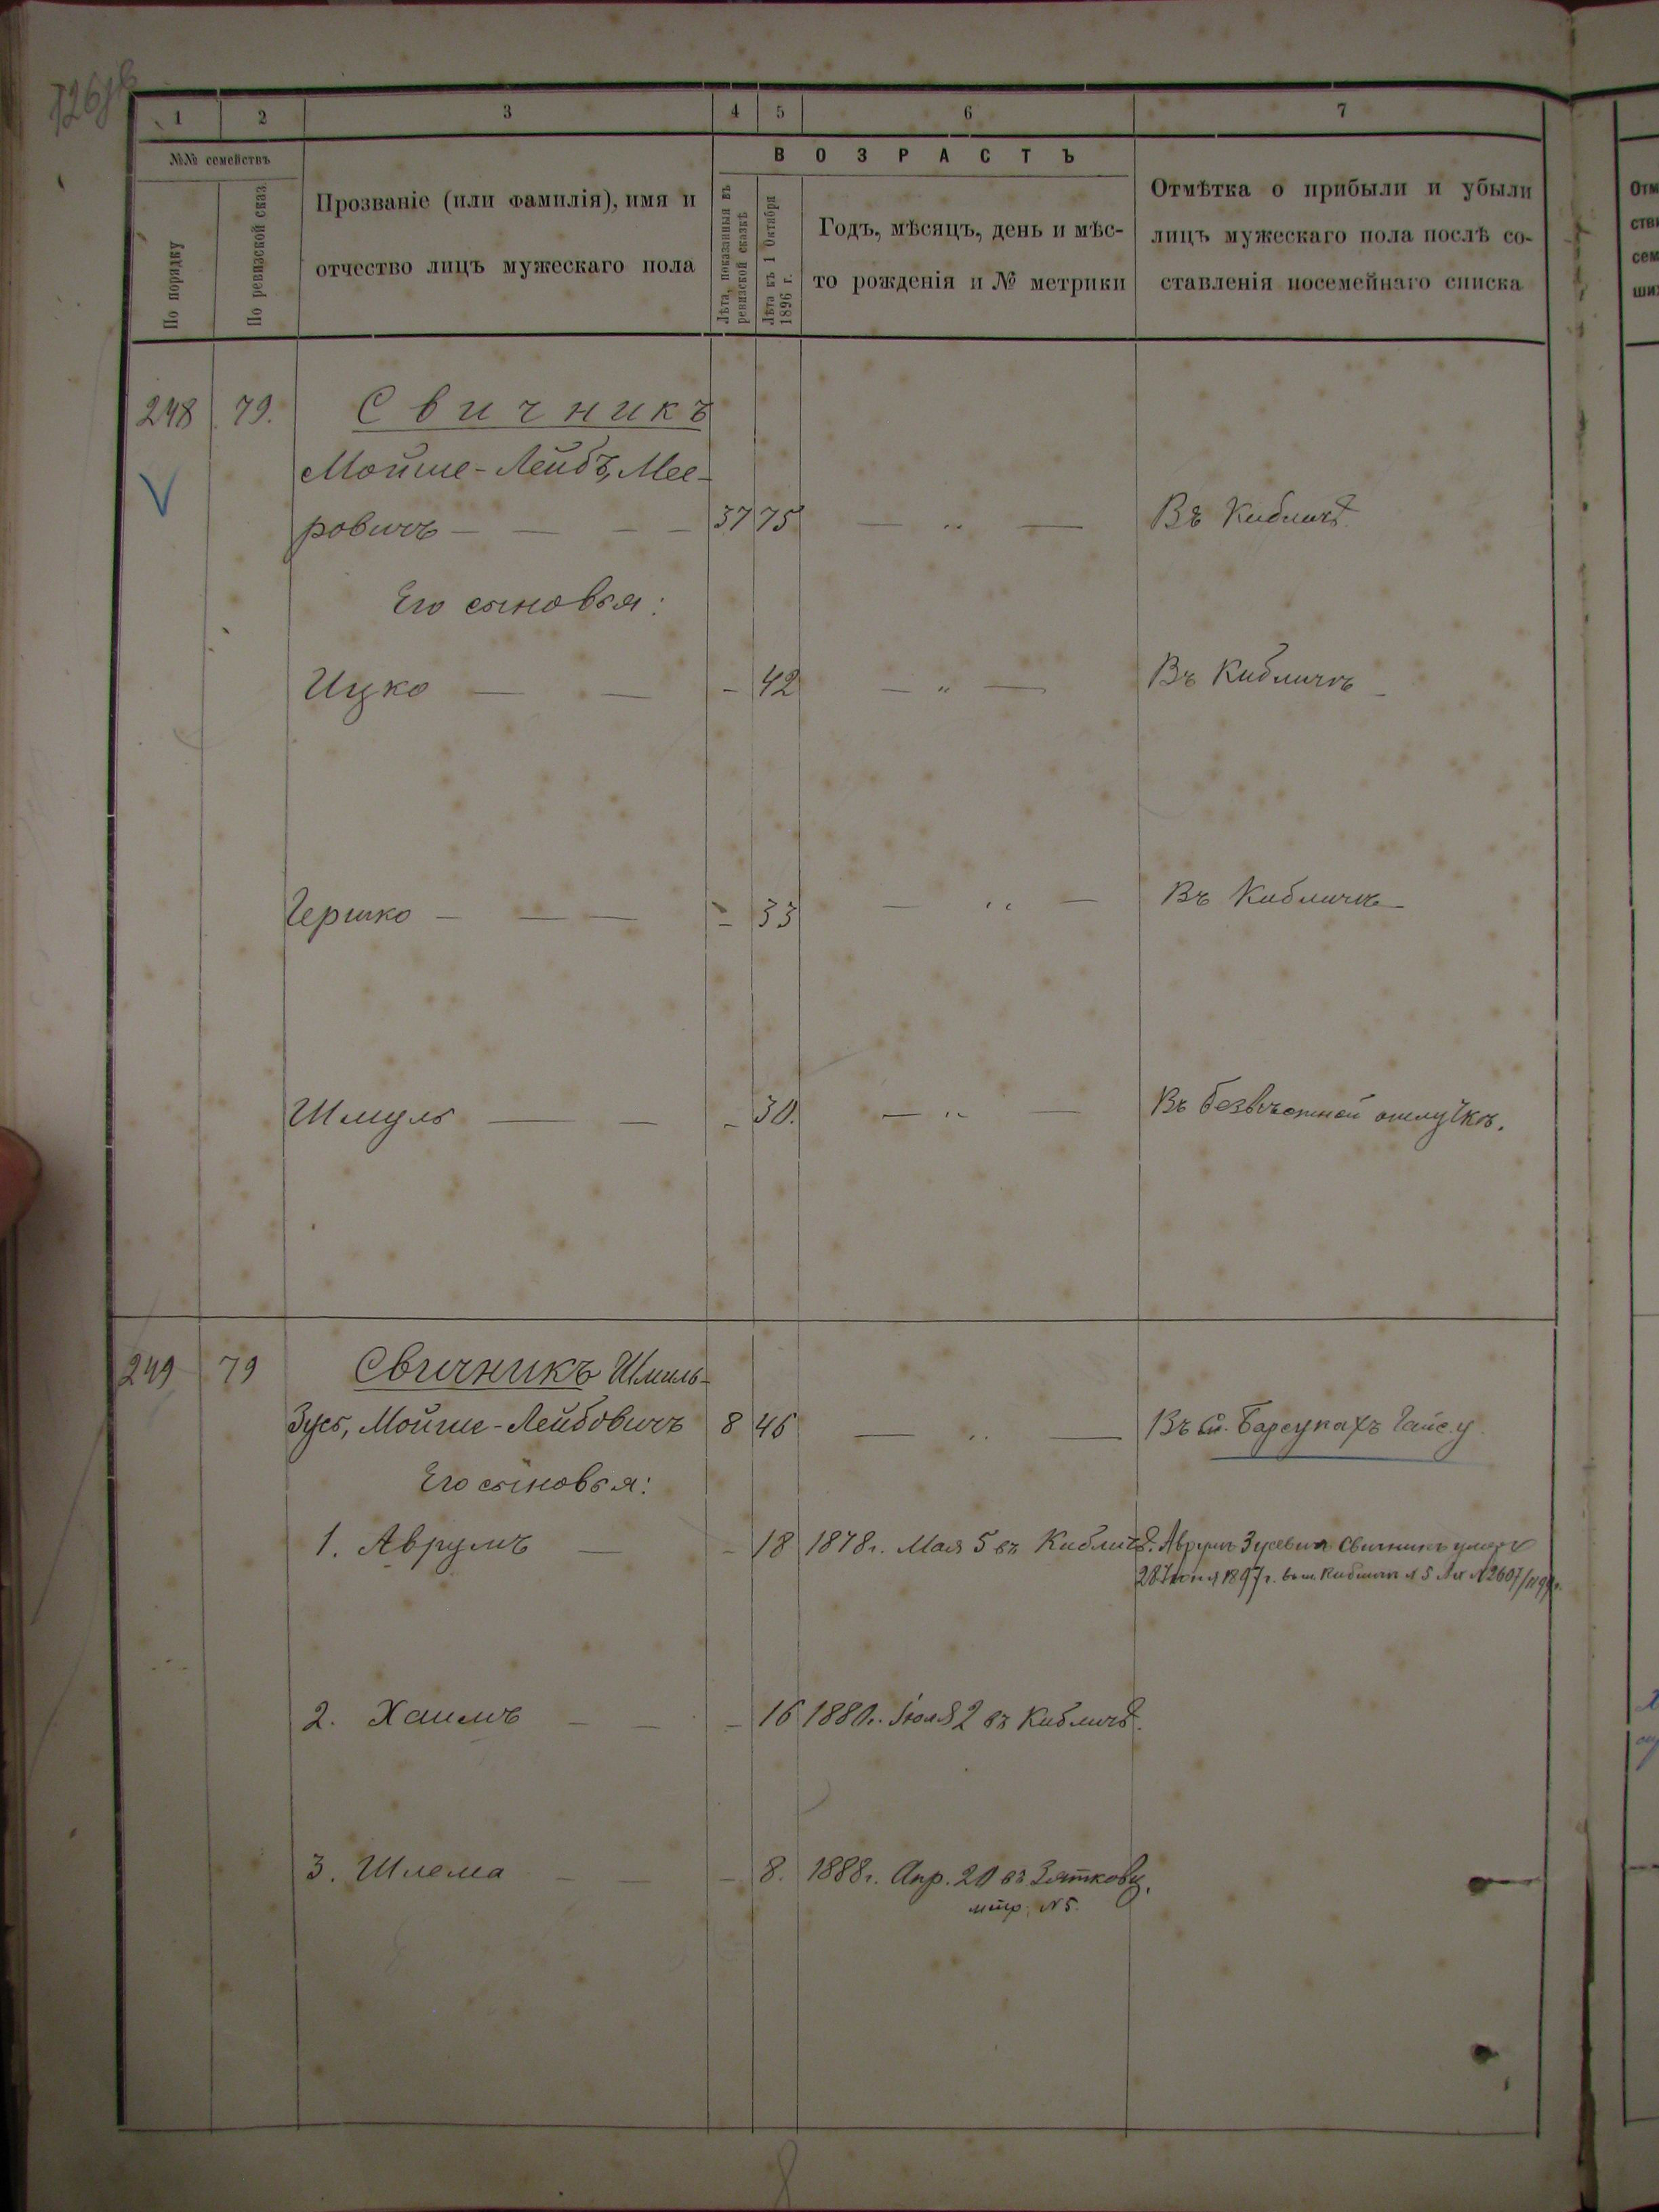 1 2 3 4 5 6 7
№№ семействъ
По порядку
По ревизской сказ.
Прозваніе (или фамилія), имя и
отчество лицъ мужескаго пола
ВОЗРАСТЪ
Лѣта, показанныя въ
ревизской сказкѣ
Лѣта къ 1 Октября
1896 г.
Годъ, мѣсяцъ, день и мѣс-
то рожденія и № метрики
Отмѣтка о прибыли и убыли
лицъ мужескаго пола послѣ со-
ставленія посемейнаго списка
248 79. Свичникъ
Мойше-Лейбъ, Мее-
ровичъ — — — — 37 75 — „ — Въ Кибличѣ.
Его сыновья:
Ицко — — - 42 — „ — Въ Кибличѣ
Гершко — — — - 33 — „ — Въ Кибличѣ
Шмуль — — - 30. — „ — Въ безвѣстной отлучкѣ.
249 79 Свичникъ Шмиль-
Зусь, Мойше-Лейбовичъ 8 46 — „ — Въ с. Барсукахъ Гайс. у.
Его сыновья:
1. Аврумъ — - 18 1878 г. Мая 5 въ Кибличѣ. Аврумъ Зусевичъ Свичникъ умеръ
28 Іюня 1897 г. въ м. Кибличѣ № 5 № 2607/
2. Хаимъ — — - 16 1880 г. Іюля 2 въ Кибличѣ.
3. Шлема — — - 8. 1888 г. Апр. 20 въ Зятковц.
мтр. № 5.